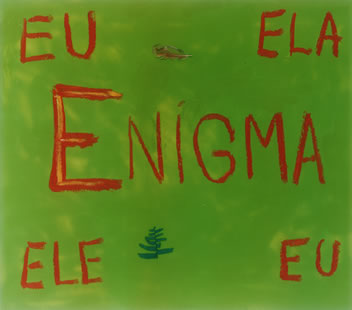 EU ELA
ENÍGMA
ELE EU